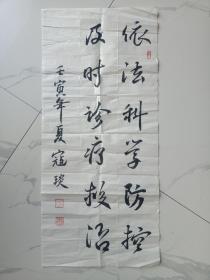 依法科学防控
及时诊疗救治
壬寅年夏寇琰